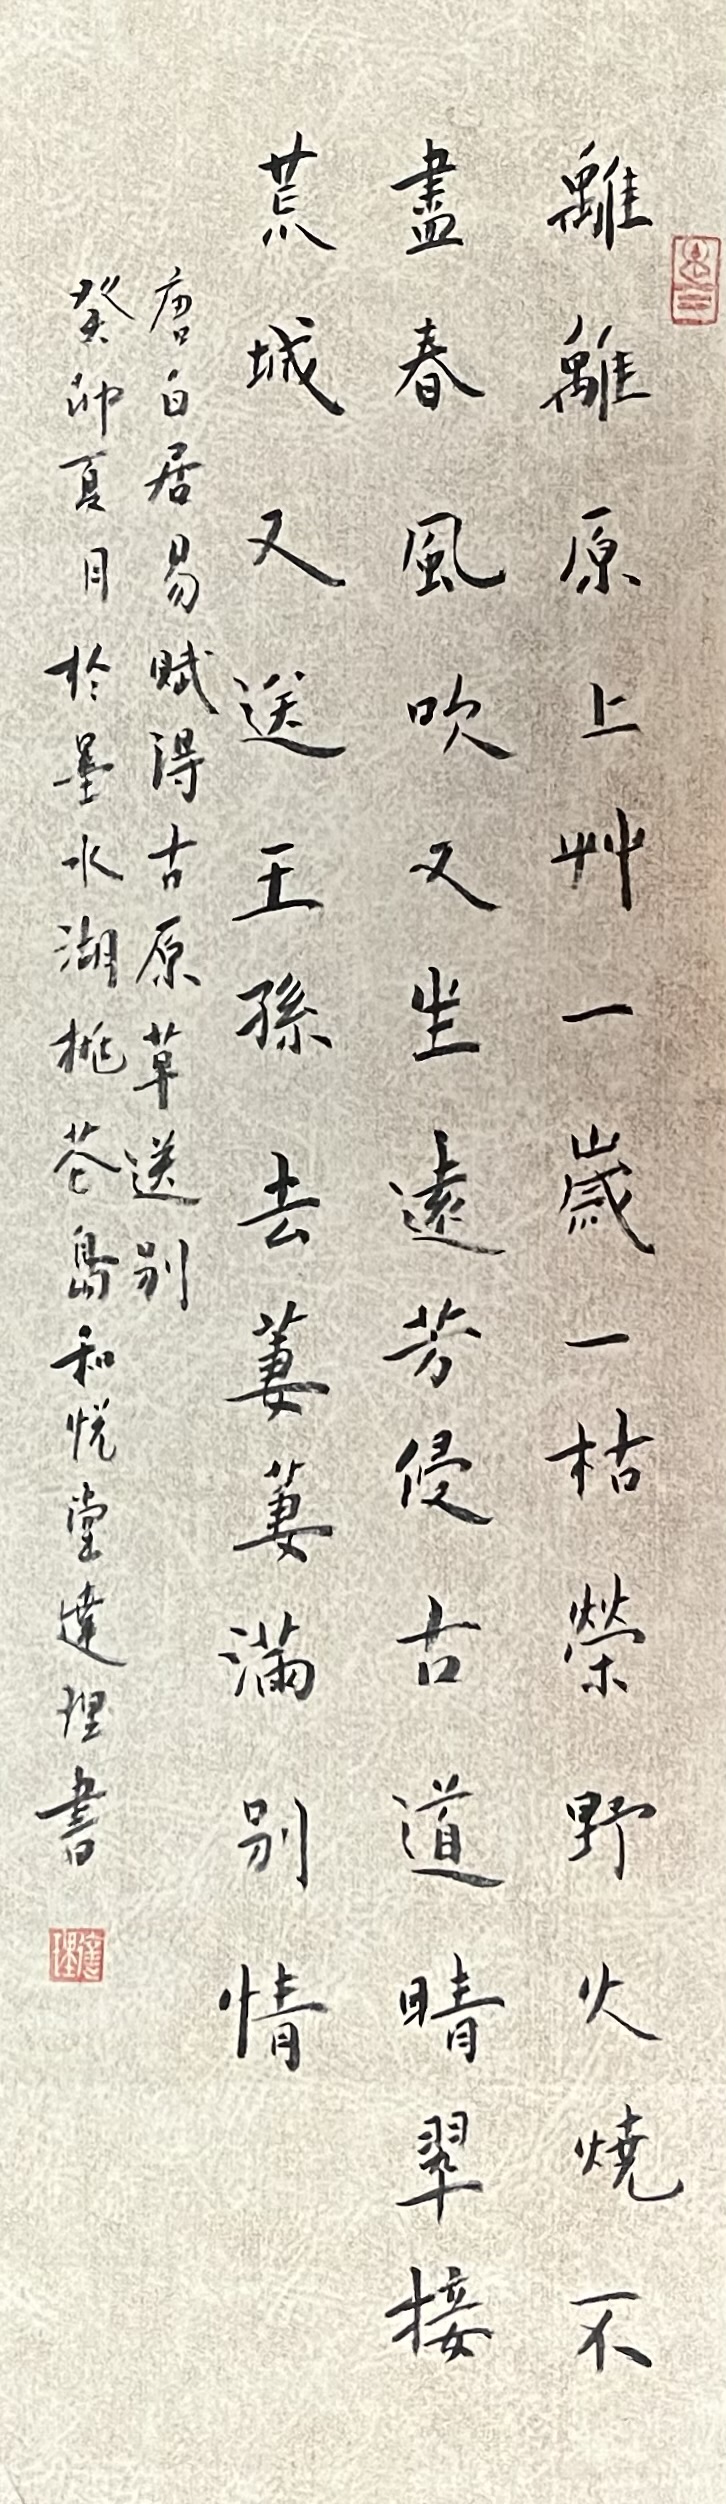 離離原上艸一歲一枯榮野火燒不
盡春風吹又生遠芳侵古道晴翠接
荒城又送王孫去萋萋滿別情
唐白居易賦得古原草送別
癸卯夏月於墨水湖桃花島和悅堂達理書
達理